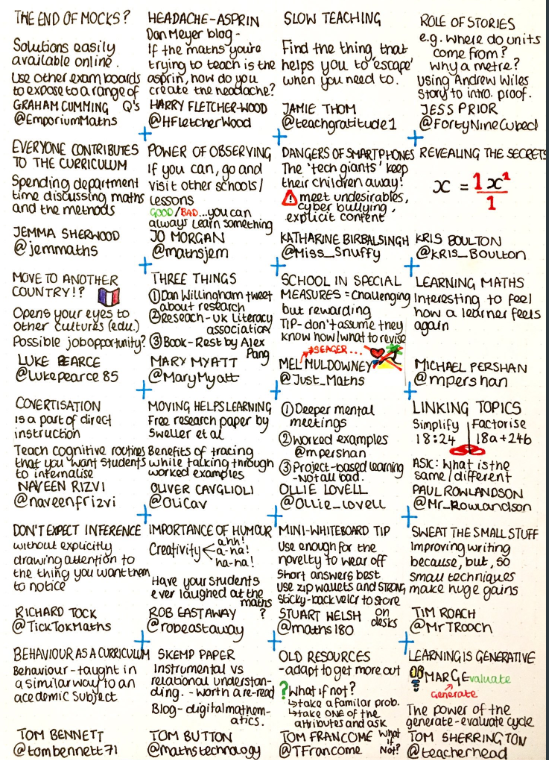 THE END OF MOCKS?
Solutions easily
available online.
Use other exam boards
to expose to a range of
Q's
GRAHAM CUMMING
@EmporiumMaths
HEADACHE-ASPRIN
Dan Meyer blog -
If the maths you're
trying to teach is the
asprin, how do you
create the headache?
HARRY FLETCHER-WOOD
@HFletcherWood
SLOW TEACHING
Find the thing that
helps you to 'escape'
when you need to.
JAMIE THOM
@teachgratitude1
ROLE OF STORIES
e.g. where do units
come from?
Why a metre?
Using Andrew Wiles
story to intro. proof.
JESS PRIOR
@FortyNineCubed
EVERYONE CONTRIBUTES
TO THE CURRICULUM
Spending department
time discussing maths
and the methods
JEMMA SHERWOOD
@jemmaths
POWER OF OBSERVING
If you can, go and
visit other schools/
lessons
GOOD/BAD...you can
always learn something
JO MORGAN
@mathsjem
DANGERS OF SMARTPHONES
The 'tech giants' keep
their children away!
! meet undesirables,
cyber bullying,
explicit content
KATHARINE BIRBALSINGH
@Miss_Snuffy
REVEALING THE SECRETS
x = 1x¹
1
KRIS BOULTON
@Kris_Boulton
MOVE TO ANOTHER
COUNTRY!?
Opens your eyes to
other cultures (edu.)
Possible job opportunity?
LUKE PEARCE
@lukepearce85
THREE THINGS
① Dan Willingham tweet
about research
② Reseach - UK Literacy
association
③ Book - Rest by Alex
Pang
MARY MYATT
@MaryMyatt
SCHOOL IN SPECIAL
MEASURES = Challenging
but rewarding
TIP - don't assume they
know how/what to revise
SEAGER...
MEL MULDOWNEY
@Just_Maths
LEARNING MATHS
Interesting to feel
how a learner feels
again
MICHAEL PERSHAN
@mpershan
COVERTISATION
is a part of direct
instruction
Teach cognitive routines
that you want students
to internalise
NAVEEN RIZVI
@naveenfrizvi
MOVING HELPS LEARNING
Free research paper by
Sweller et al
Benefits of tracing
while talking through
worked examples
OLIVER CAVGLIOLI
@OliCav
① Deeper mental
meetings
② Worked examples
@mpershan
③ Project-based learning
- Not all bad.
OLLIE LOVELL
@Ollie_Lovell
LINKING TOPICS
Simplify Factorise
18:24 18a+24b
ASK: What is the
same/different
PAUL ROWLANDSON
@Mr_Rowlandson
DON'T EXPECT INFERENCE
without explicitly
drawing attention to
the thing you want them
to notice
RICHARD TOCK
@TickTokMaths
IMPORTANCE OF HUMOUR
Creativity
ahh!
a-ha!
ha-ha!
Have your students
ever laughed at the
maths
?
ROB EASTAWAY
@robeastaway
MINI-WHITEBOARD TIP
Use enough for the
novelty to wear off
Short answers best
Use zip wallets and STRONG
sticky-back velcr to store
on
desks
STUART WELSH
@maths180
SWEAT THE SMALL STUFF
Improving writing
because, but, so
small techniques
make huge gains
TIM ROACH
@MrTRoach
BEHAVIOUR AS A CURRICULUM
Behaviour - taught in
a similar way to an
academic subject
TOM BENNETT
@tombennett71
SKEMP PAPER
Instrumental vs
relational understan-
ding. - worth a re-read
Blog - digitalmathem-
atics.
TOM BUTTON
@mathstechnology
OLD RESOURCES
- adapt to get more out
? What if not?
↳ take a familar prob.
↳ take ONE of the
attributes and ask
What
if
Not?
TOM FRANCOME
@TFrancome
LEARNING IS GENERATIVE
MARGE
valuate
generate
The power of the
generate-evaluate cycle
TOM SHERRINGTON
@teacherhead